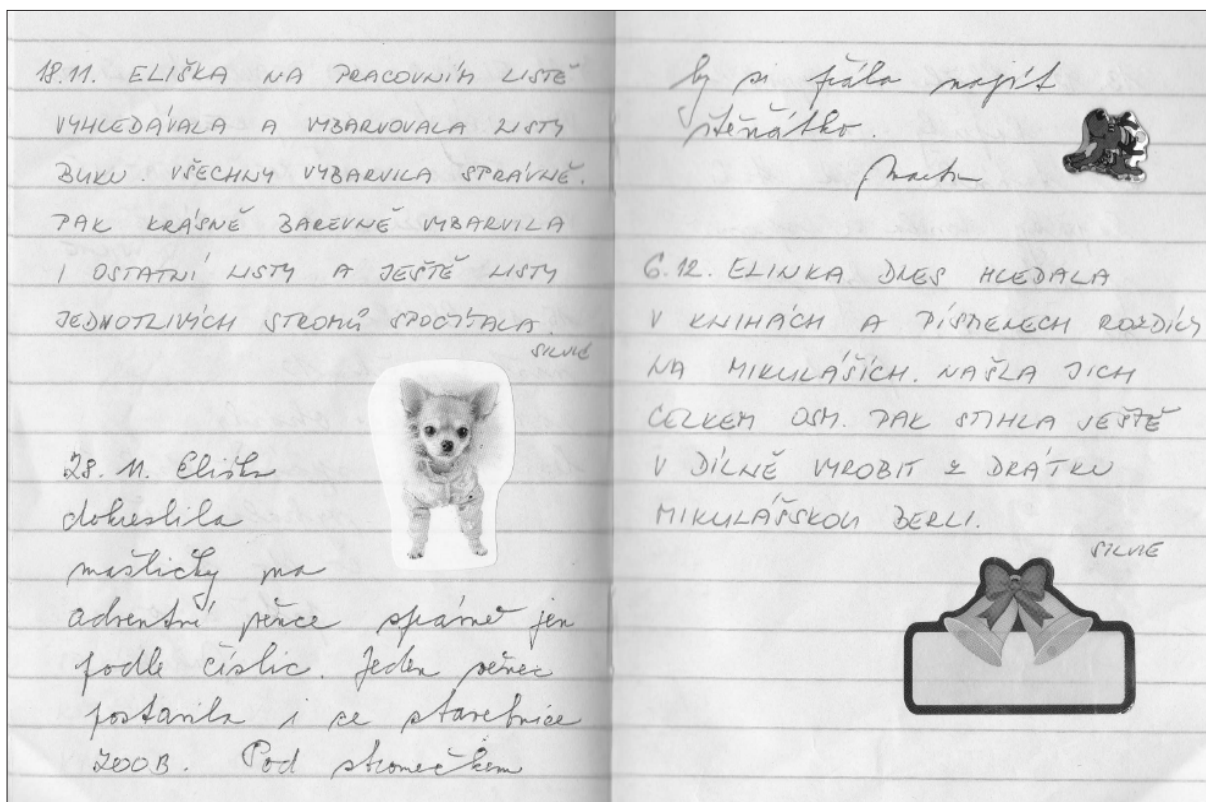 18.11. ELIŠKA NA PRACOVNÍM LISTĚ
VYHLEDÁVALA A VYBARVOVALA LISTY
BUKU. VŠECHNY VYBARVILA SPRÁVNĚ.
PAK KRÁSNĚ BAREVNĚ VYBARVILA
I OSTATNÍ LISTY A JEŠTĚ LISTY
JEDNOTLIVÝCH STROMŮ SPOČÍTALA.
SILVIE
28. 11. Eliška
dokreslila
mašličky na
adventní věnce správně jen
podle číslic. Jeden věnec
postavila i ze stavebnice
ZOOB. Pod stromečkem
by si přála najít
štěňátko.
6.12. ELINKA DNES HLEDALA
V KNIHÁCH A PÍSMENECH ROZDÍLY
NA MIKULÁŠÍCH. NAŠLA JICH
CELKEM OSM. PAK STIHLA JEŠTĚ
V DÍLNĚ VYROBIT Z DRÁTKU
MIKULÁŠSKOU BERLI.
SILVIE